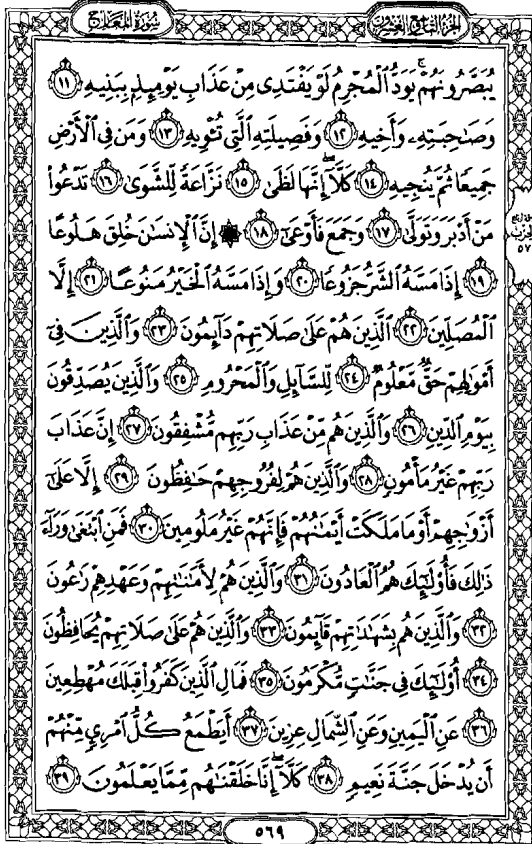 سُورَةُ المَعَارِجِ
الجُزْءُ التَّاسِعُ وَالعِشْرُونَ
يُبَصَّرُونَهُمْ ۚ يَوَدُّ ٱلْمُجْرِمُ لَوْ يَفْتَدِى مِنْ عَذَابِ يَوْمِئِذٍۭ بِبَنِيهِ ١١
وَصَـٰحِبَتِهِۦ وَأَخِيهِ ١٢ وَفَصِيلَتِهِ ٱلَّتِى تُـْٔوِيهِ ١٣ وَمَن فِى ٱلْأَرْضِ
جَمِيعًا ثُمَّ يُنجِيهِ ١٤ كَلَّآ ۖ إِنَّهَا لَظَىٰ ١٥ نَزَّاعَةً لِّلشَّوَىٰ ١٦ تَدْعُوا۟
مَنْ أَدْبَرَ وَتَوَلَّىٰ ١٧ وَجَمَعَ فَأَوْعَىٰٓ ١٨ ۞ إِنَّ ٱلْإِنسَـٰنَ خُلِقَ هَلُوعًا
١٩ إِذَا مَسَّهُ ٱلشَّرُّ جَزُوعًا ٢٠ وَإِذَا مَسَّهُ ٱلْخَيْرُ مَنُوعًا ٢١ إِلَّا
ٱلْمُصَلِّينَ ٢٢ ٱلَّذِينَ هُمْ عَلَىٰ صَلَاتِهِمْ دَآئِمُونَ ٢٣ وَٱلَّذِينَ فِىٓ
أَمْوَٰلِهِمْ حَقٌّ مَّعْلُومٌ ٢٤ لِّلسَّآئِلِ وَٱلْمَحْرُومِ ٢٥ وَٱلَّذِينَ يُصَدِّقُونَ
بِيَوْمِ ٱلدِّينِ ٢٦ وَٱلَّذِينَ هُم مِّنْ عَذَابِ رَبِّهِم مُّشْفِقُونَ ٢٧ إِنَّ عَذَابَ
رَبِّهِمْ غَيْرُ مَأْمُونٍ ٢٨ وَٱلَّذِينَ هُمْ لِفُرُوجِهِمْ حَـٰفِظُونَ ٢٩ إِلَّا عَلَىٰٓ
أَزْوَٰجِهِمْ أَوْ مَا مَلَكَتْ أَيْمَـٰنُهُمْ فَإِنَّهُمْ غَيْرُ مَلُومِينَ ٣٠ فَمَنِ ٱبْتَغَىٰ وَرَآءَ
ذَٰلِكَ فَأُو۟لَـٰٓئِكَ هُمُ ٱلْعَادُونَ ٣١ وَٱلَّذِينَ هُمْ لِأَمَـٰنَـٰتِهِمْ وَعَهْدِهِمْ رَٰعُونَ
٣٢ وَٱلَّذِينَ هُم بِشَهَـٰدَٰتِهِمْ قَآئِمُونَ ٣٣ وَٱلَّذِينَ هُمْ عَلَىٰ صَلَاتِهِمْ يُحَافِظُونَ
٣٤ أُو۟لَـٰٓئِكَ فِى جَنَّـٰتٍ مُّكْرَمُونَ ٣٥ فَمَالِ ٱلَّذِينَ كَفَرُوا۟ قِبَلَكَ مُهْطِعِينَ
٣٦ عَنِ ٱلْيَمِينِ وَعَنِ ٱلشِّمَالِ عِزِينَ ٣٧ أَيَطْمَعُ كُلُّ ٱمْرِئٍ مِّنْهُمْ
أَن يُدْخَلَ جَنَّةَ نَعِيمٍ ٣٨ كَلَّآ ۖ إِنَّا خَلَقْنَـٰهُم مِّمَّا يَعْلَمُونَ ٣٩
٥٧
٥٦٩